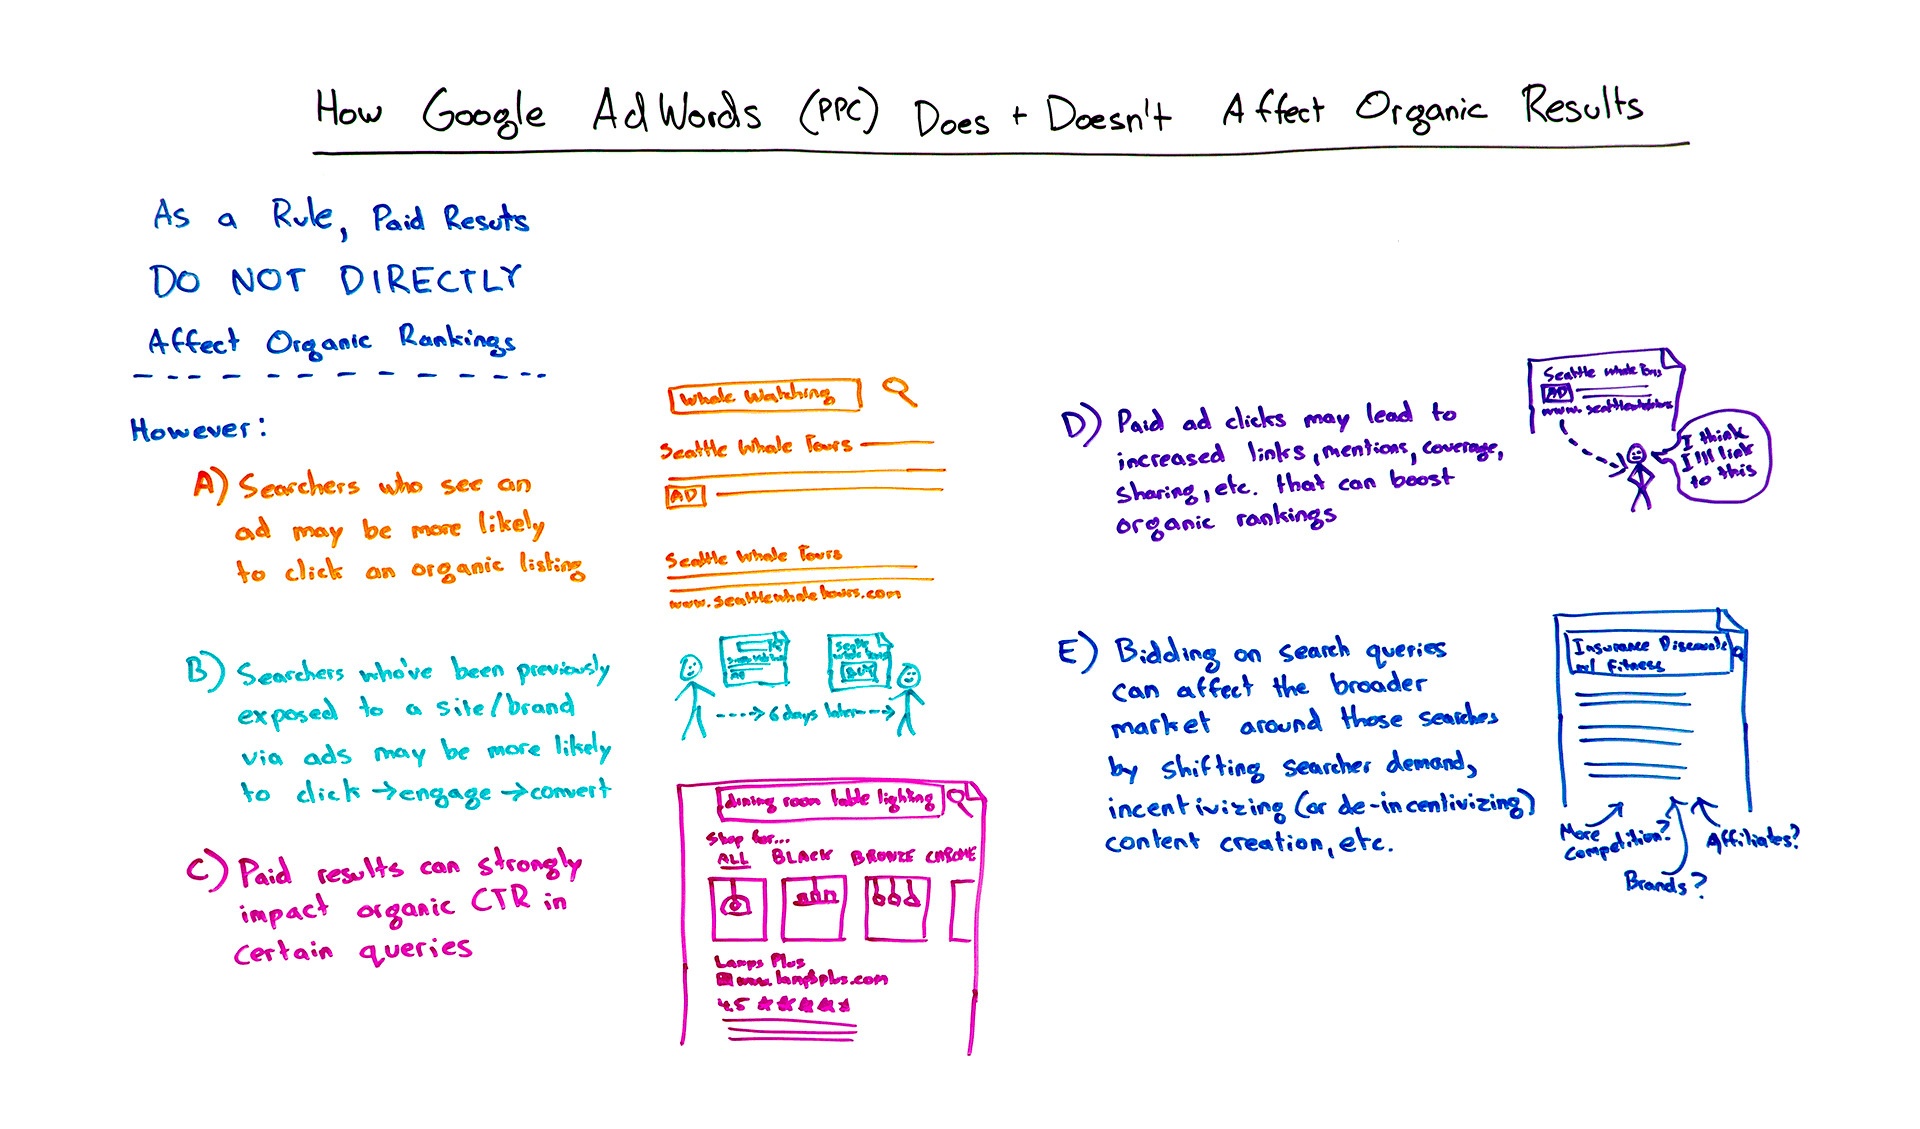 How Google AdWords (PPC) Does + Doesn't Affect Organic Results
As a Rule, Paid Resuts
DO NOT DIRECTLY
Affect Organic Rankings
However:
A) Searchers who see an
ad may be more likely
to click an organic listing
Whale Watching
Seattle Whale Tours
AD
Seattle Whale Tours
www.seattlewhaletours.com
B) Searchers who've been previously
exposed to a site/brand
via ads may be more likely
to click → engage → convert
6 days later
C) Paid results can strongly
impact organic CTR in
certain queries
dining room table lighting
Shop for...
ALL BLACK BRONZE CHROME
Lamps Plus
www.lampsplus.com
4.5 ★★★★★
D) Paid ad clicks may lead to
increased links, mentions, coverage,
sharing, etc. that can boost
organic rankings
Seattle Whale Tours
AD
I think
I'll link
to this
E) Bidding on search queries
can affect the broader
market around those searches
by shifting searcher demand,
incentivizing (or de-incentivizing)
content creation, etc.
Insurance Discounts
w/ Fitness
More
Competition?
Brands?
Affiliates?